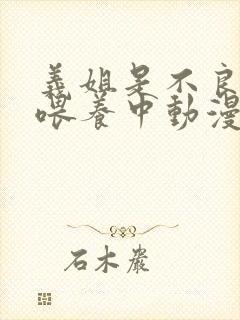 義姐是不良
喂養中動漫
石木嚴